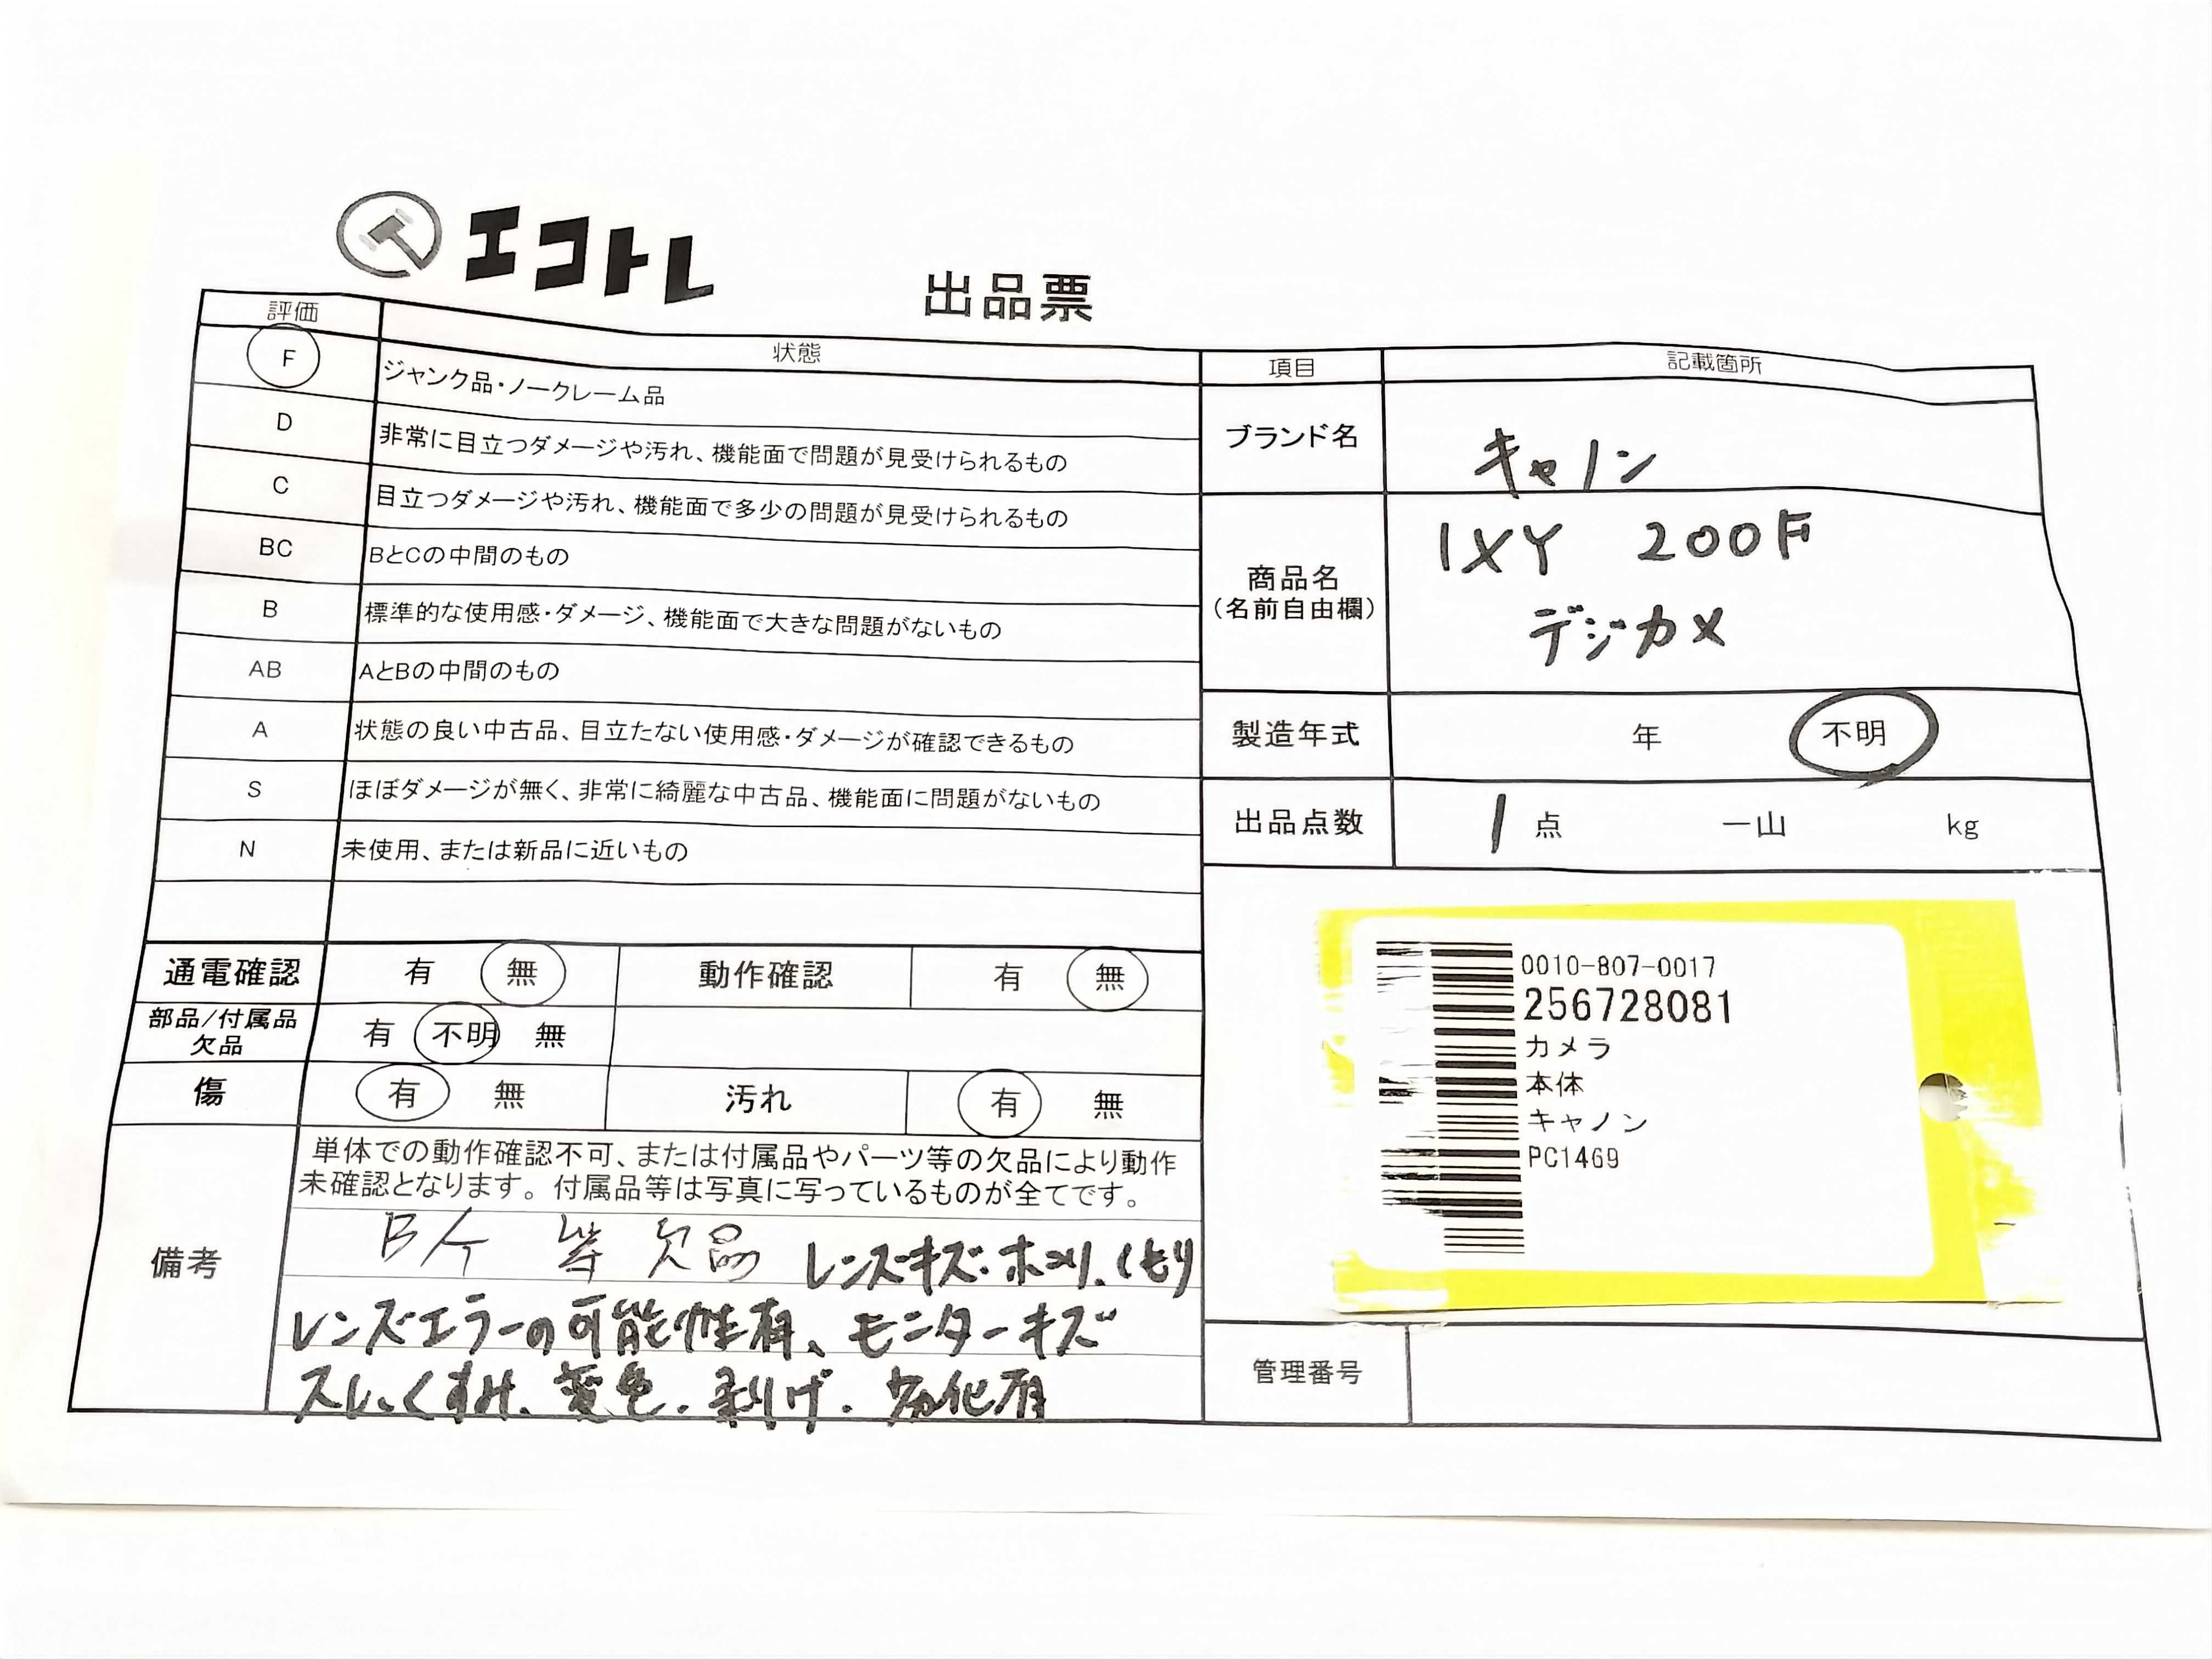 エコトレ
出品票
評価 状態
F ジャンク品・ノークレーム品
D 非常に目立つダメージや汚れ、機能面で問題が見受けられるもの
C 目立つダメージや汚れ、機能面で多少の問題が見受けられるもの
BC BとCの中間のもの
B 標準的な使用感・ダメージ、機能面で大きな問題がないもの
AB AとBの中間のもの
A 状態の良い中古品、目立たない使用感・ダメージが確認できるもの
S ほぼダメージが無く、非常に綺麗な中古品、機能面に問題がないもの
N 未使用、または新品に近いもの
通電確認 有 無 動作確認 有 無
部品/付属品
欠品 有 不明 無
傷 有 無 汚れ 有 無
備考
単体での動作確認不可、または付属品やパーツ等の欠品により動作
未確認となります。付属品等は写真に写っているものが全てです。
等 欠品 レンズキズ・ホコリ、くもり
レンズエラーの可能性有、モニターキズ
スレ、くすみ、変色、剥げ、劣化有
項目 記載箇所
ブランド名 キャノン
商品名
(名前自由欄)
IXY 200F
デジカメ
製造年式 年 不明
出品点数 1 点 一山 kg
0010-807-0017
256728081
カメラ
本体
キャノン
PC1469
管理番号